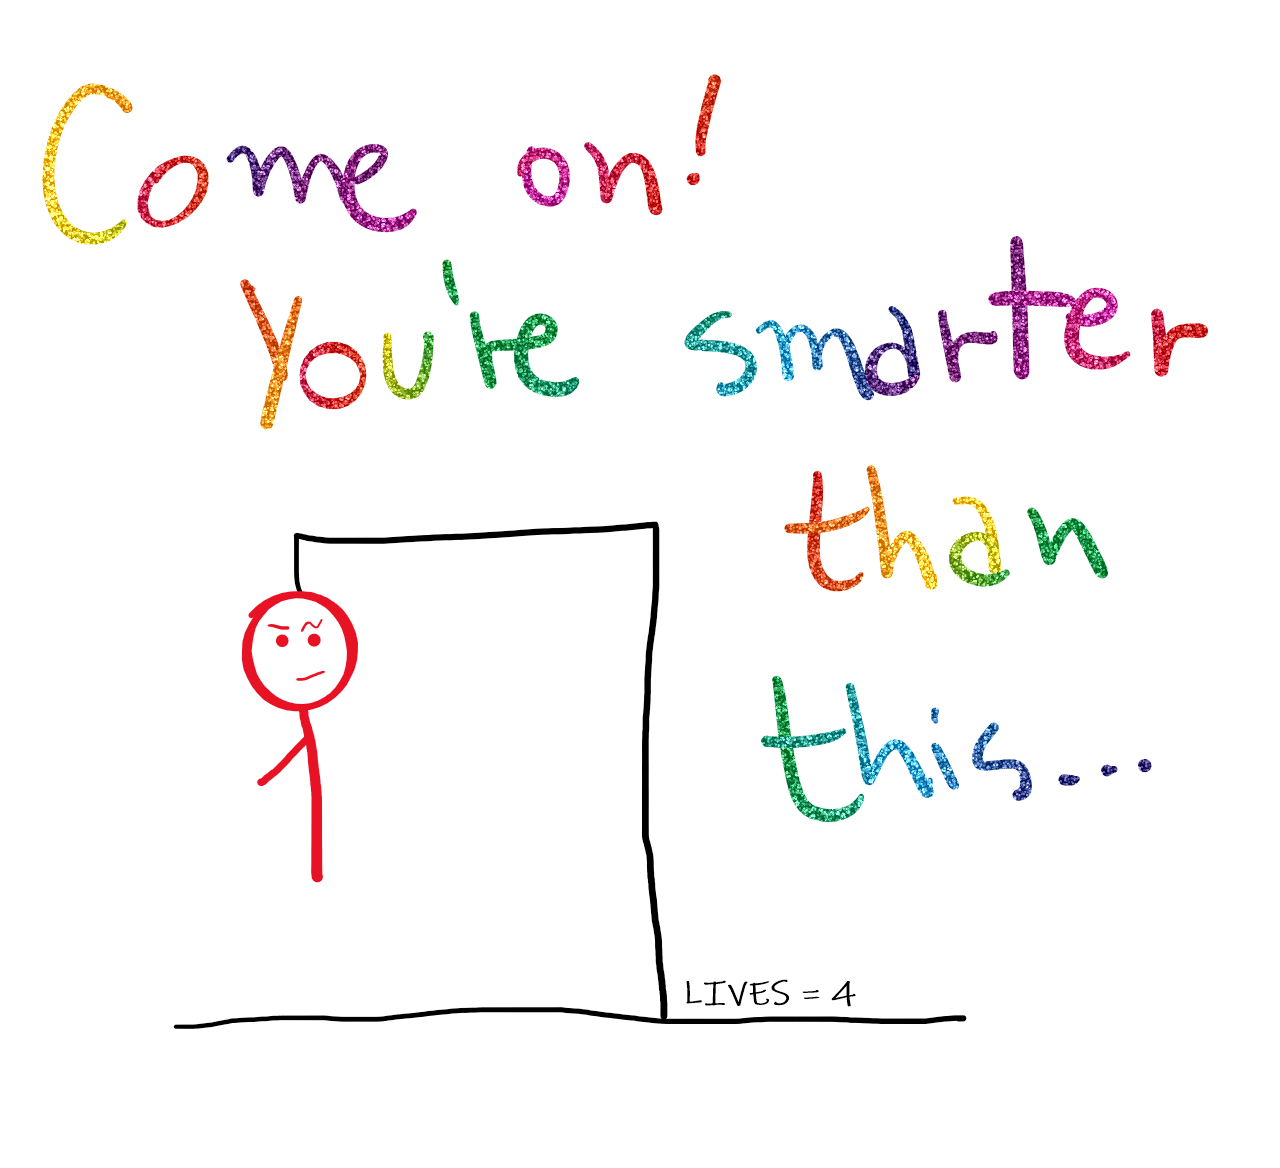 Come on!
You're smarter
than
this...
LIVES = 4